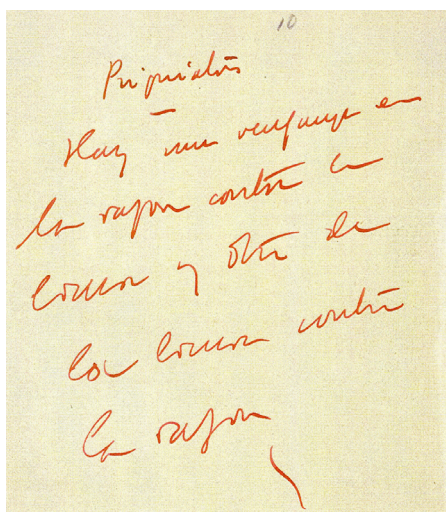 10
Hay una venganza en
la razon contra la
locura y otra de
la locura contra
la razon